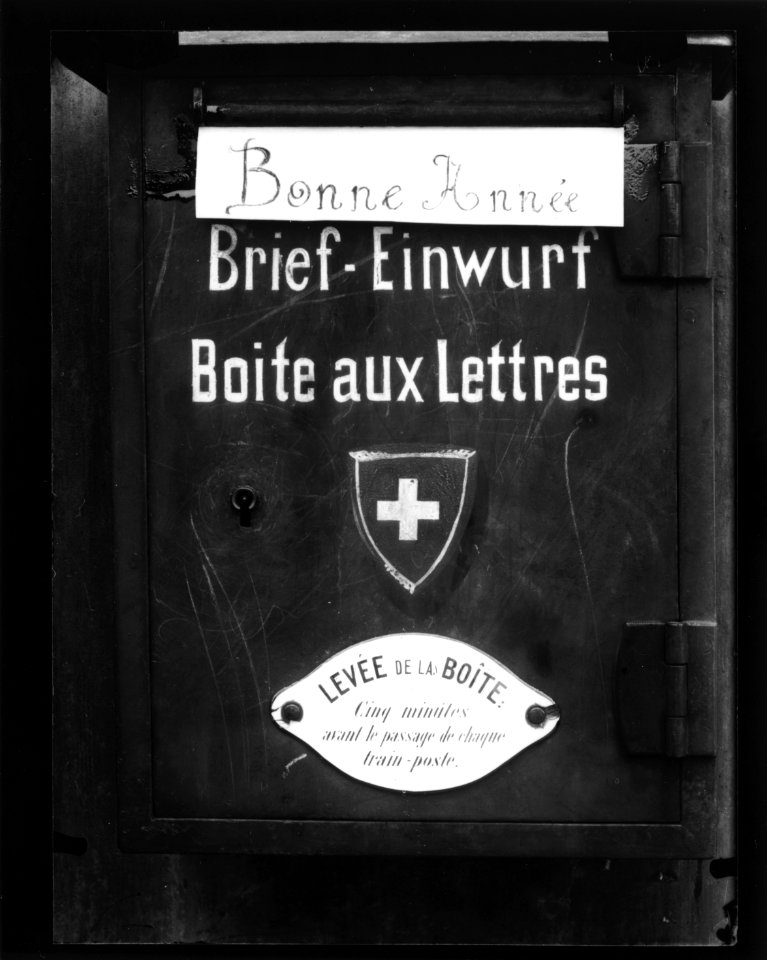 Bonne Année
Brief-Einwurf
Boite aux Lettres
LEVÉE DE LA BOÎTE:
Cinq minutes
avant le passage de chaque
train-poste.